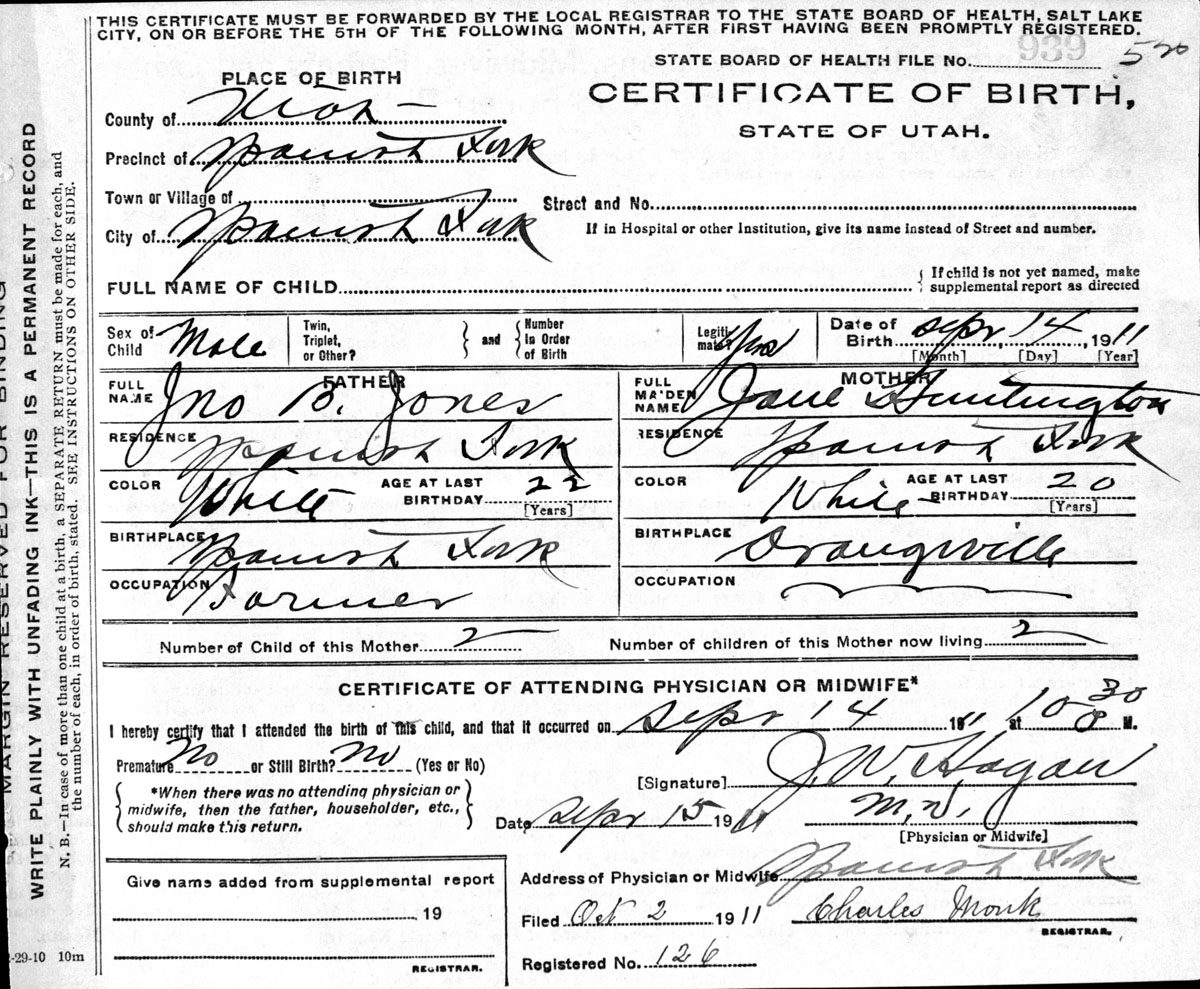 THIS CERTIFICATE MUST BE FORWARDED BY THE LOCAL REGISTRAR TO THE STATE BOARD OF HEALTH, SALT LAKE
CITY, ON OR BEFORE THE 5TH OF THE FOLLOWING MONTH, AFTER FIRST HAVING BEEN PROMPTLY REGISTERED.
STATE BOARD OF HEALTH FILE No. 939 520
PLACE OF BIRTH
CERTIFICATE OF BIRTH,
STATE OF UTAH.
County of Utah
Precinct of Spanish Fork
Town or Village of
Street and No.
City of Spanish Fork
If in Hospital or other Institution, give its name instead of Street and number.
FULL NAME OF CHILD
{ If child is not yet named, make
supplemental report as directed
Sex of Child Male
Twin, Triplet, or Other?
} and {
Number in Order of Birth
Legitimate? Yes
Date of Birth Sepr 14, 1911
[Month] [Day] [Year]
FATHER
FULL NAME Jno B. Jones
RESIDENCE Spanish Fork
COLOR White AGE AT LAST BIRTHDAY 22
[Years]
BIRTHPLACE Spanish Fork
OCCUPATION Farmer
MOTHER
FULL MAIDEN NAME Jane Huntington
RESIDENCE Spanish Fork
COLOR White AGE AT LAST BIRTHDAY 20
[Years]
BIRTHPLACE Orangville
OCCUPATION
Number of Child of this Mother 2 Number of children of this Mother now living 2
CERTIFICATE OF ATTENDING PHYSICIAN OR MIDWIFE*
I hereby certify that I attended the birth of this child, and that it occurred on Sepr 14 1911 at 10-30 P M.
Premature No or Still Birth? No (Yes or No)
[Signature] J. W. Hagan
*When there was no attending physician or
midwife, then the father, householder, etc.,
should make this return.
Date Sepr 15 1911 M.D.
[Physician or Midwife]
Address of Physician or Midwife Spanish Fork
Give name added from supplemental report
19
REGISTRAR.
Filed Oct 2 1911 Charles Monk
REGISTRAR.
Registered No. 126
2-29-10 10m
MARGIN RESERVED FOR BINDING
WRITE PLAINLY WITH UNFADING INK—THIS IS A PERMANENT RECORD
N. B.—In case of more than one child at a birth, a SEPARATE RETURN must be made for each, and
the number of each, in order of birth, stated. SEE INSTRUCTIONS ON OTHER SIDE.